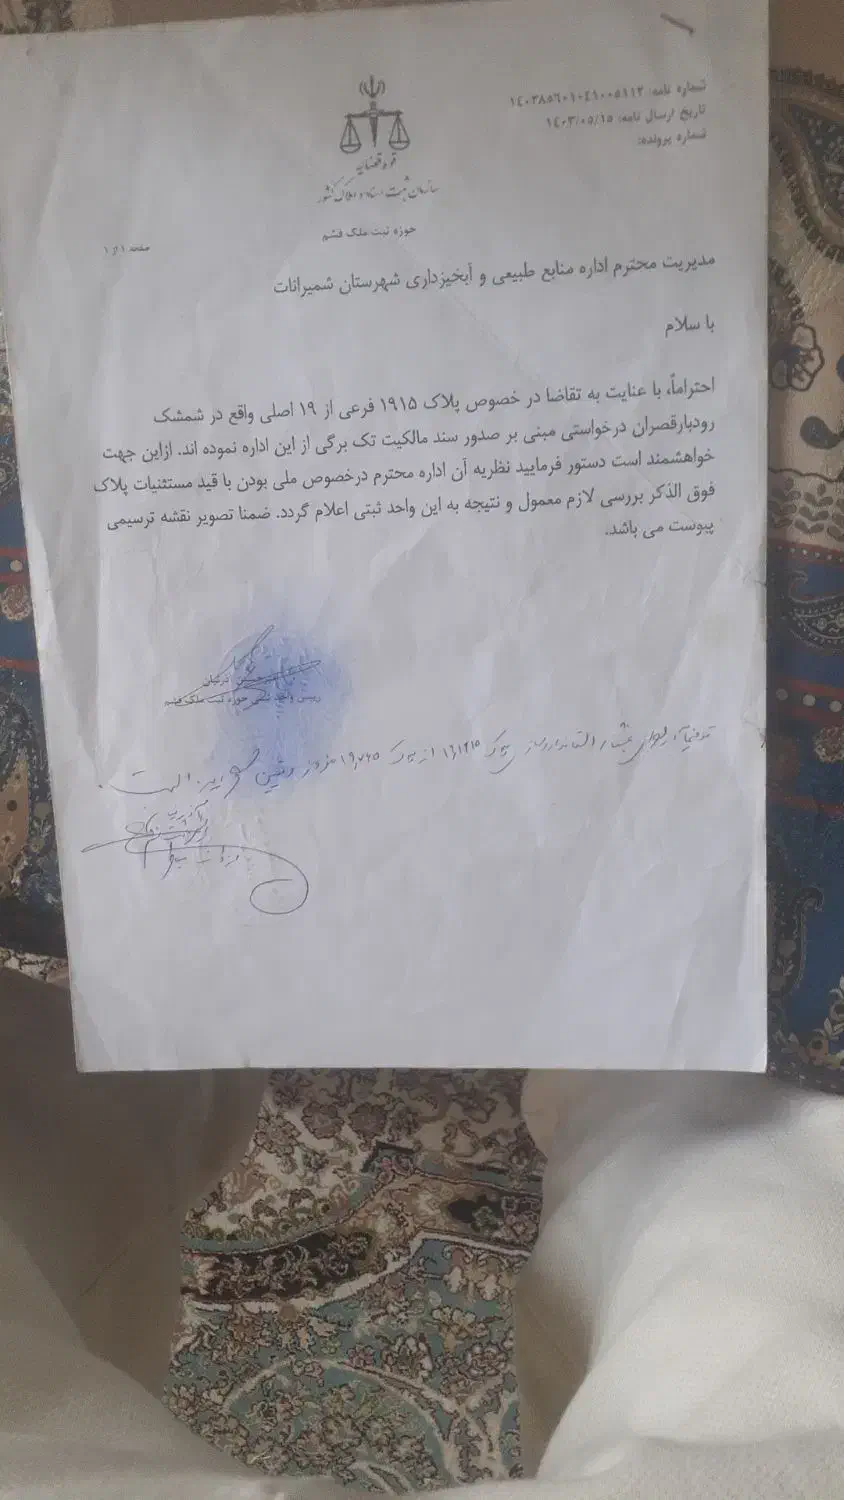 شماره نامه: ۱٤۰۳۸۵٦۰۱۰٤۹۰۰۵۱۱۲
تاریخ ارسال نامه: ۱٤۰۳/۰۵/۱۵
شماره پرونده:
قوه قضائیه
سازمان ثبت اسناد و املاک کشور
حوزه ثبت ملک فشم
صفحه ۱ از ۱
مدیریت محترم اداره منابع طبیعی و آبخیزداری شهرستان شمیرانات
با سلام
احتراماً، با عنایت به تقاضا در خصوص پلاک ۱۹۱۵ فرعی از ۱۹ اصلی واقع در شمشک
رودبارقصران درخواستی مبنی بر صدور سند مالکیت تک برگی از این اداره نموده اند. ازاین جهت
خواهشمند است دستور فرمایید نظریه آن اداره محترم درخصوص ملی بودن با قید مستثنیات پلاک
فوق الذکر بررسی لازم معمول و نتیجه به این واحد ثبتی اعلام گردد. ضمنا تصویر نقشه ترسیمی
پیوست می باشد.
رییس واحد ثبتی حوزه ثبت ملک فشم